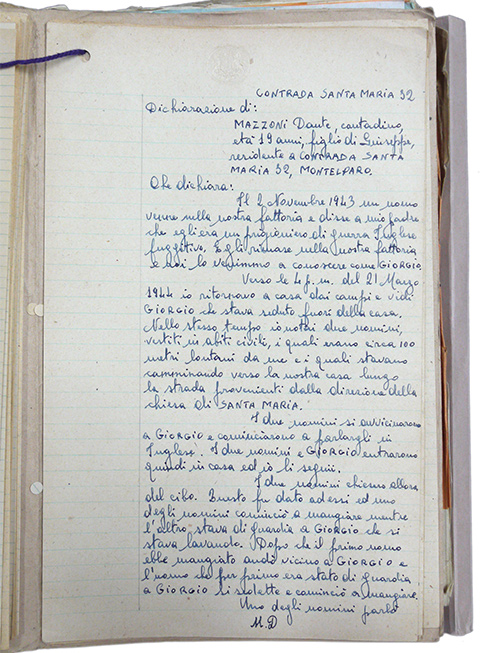 CONTRADA SANTA MARIA 32
Dichiarazione di:
MAZZONI Dante, contadino,
età 19 anni, figlio di Guiseppe,
residente a CONTRADA SANTA
MARIA 32, MONTELPARO.
Che dichiara:
Il 2 Novembre 1943 un uomo
venne nella nostra fattoria e disse a mio padre
che egli era un prigioniero di guerra Inglese
fuggitivo. Egli rimase nella nostra fattoria
e noi lo venimmo a conoscere come GIORGIO.
Verso le 4 p.m. del 21 Marzo
1944 io ritornavo a casa dai campi e vidi
GIORGIO che stava seduto fuori della casa.
Nello stesso tempo io notai due uomini,
vestiti in abiti civili, i quali erano circa 100
metri lontani da me e i quali stavano
camminando verso la nostra casa lungo
la strada provenienti dalla direzione della
chiesa di SANTA MARIA.
I due uomini si avvicinarono
a GIORGIO e cominciarono a parlargli in
Inglese. I due uomini e GIORGIO entrarono
quindi in casa ed io li seguii.
I due uomini chiesero allora
del cibo. Questo fu dato ad essi ed uno
degli uomini cominciò a mangiare mentre
l'altro stava di guardia a GIORGIO che si
stava lavando. Dopo che il primo uomo
ebbe mangiato andò vicino a GIORGIO e
l'uomo che per primo era stato di guardia
a GIORGIO si sedette e cominciò a mangiare.
Uno degli uomini parlò
M.D